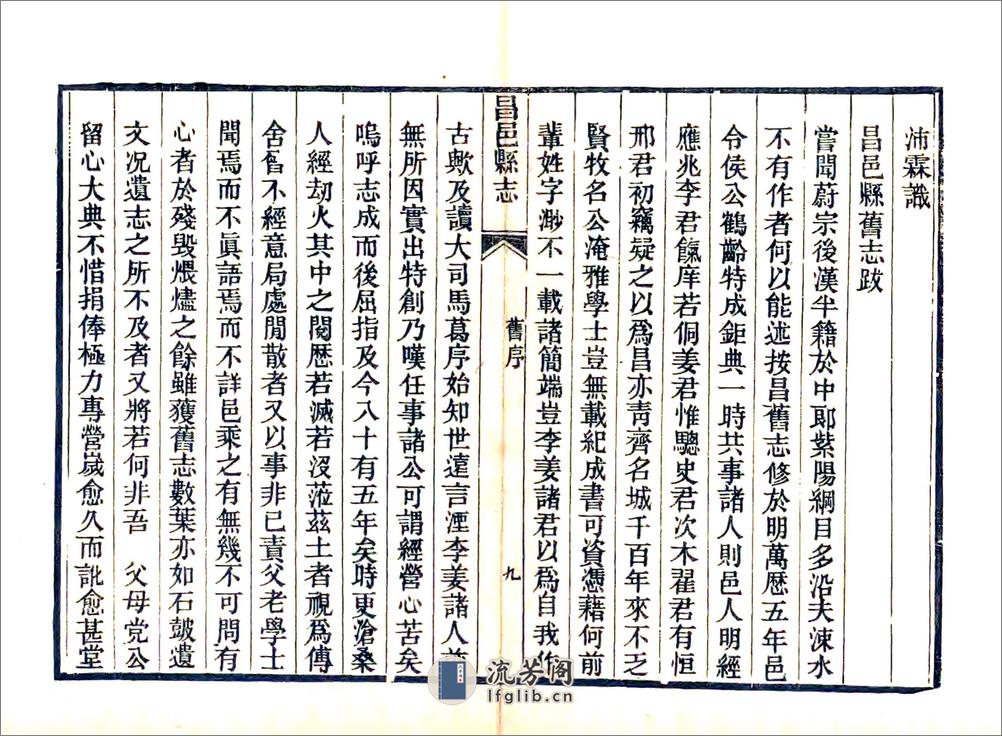 沛霖識
昌邑縣舊志跋
嘗聞蔚宗後漢半籍於中郎紫陽綱目多沿夫涑水
不有作者何以能述按昌舊志修於明萬歷五年邑
令侯公鶴齡特成鉅典一時共事諸人則邑人明經
應兆李君餼庠若侗姜君惟驄史君次木翟君有恒
邢君初竊疑之以爲昌亦靑齊名城千百年來不乏
賢牧名公淹雅學士豈無載紀成書可資憑藉何前
輩姓字渺不一載諸簡端豈李姜諸君以爲自我作
昌邑縣志
舊序
九
古歟及讀大司馬葛序始知世遠言湮李姜諸人並
無所因實出特創乃嘆任事諸公可謂經營心苦矣
嗚呼志成而後屈指及今八十有五年矣時更滄桑
人經劫火其中之閱歷若滅若沒蒞茲土者視爲傳
舍舊不經意局處閒散者又以事非已責父老學士
聞焉而不眞語焉而不詳邑乘之有無幾不可問有
心者於殘毀煨燼之餘雖獲舊志數葉亦如石皷遺
文况遺志之所不及者又將若何非吾　父母党公
留心大典不惜捐俸極力專營嵗愈久而訛愈甚堂
流芳阁
lfglib.cn